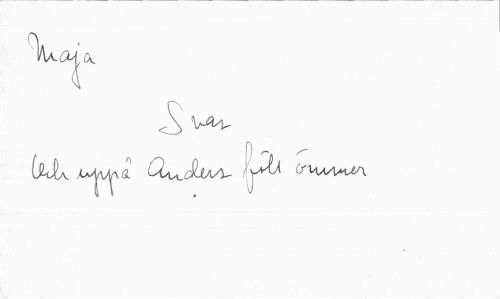 Maja
Svar
Och uppå Anders fölt ömmer